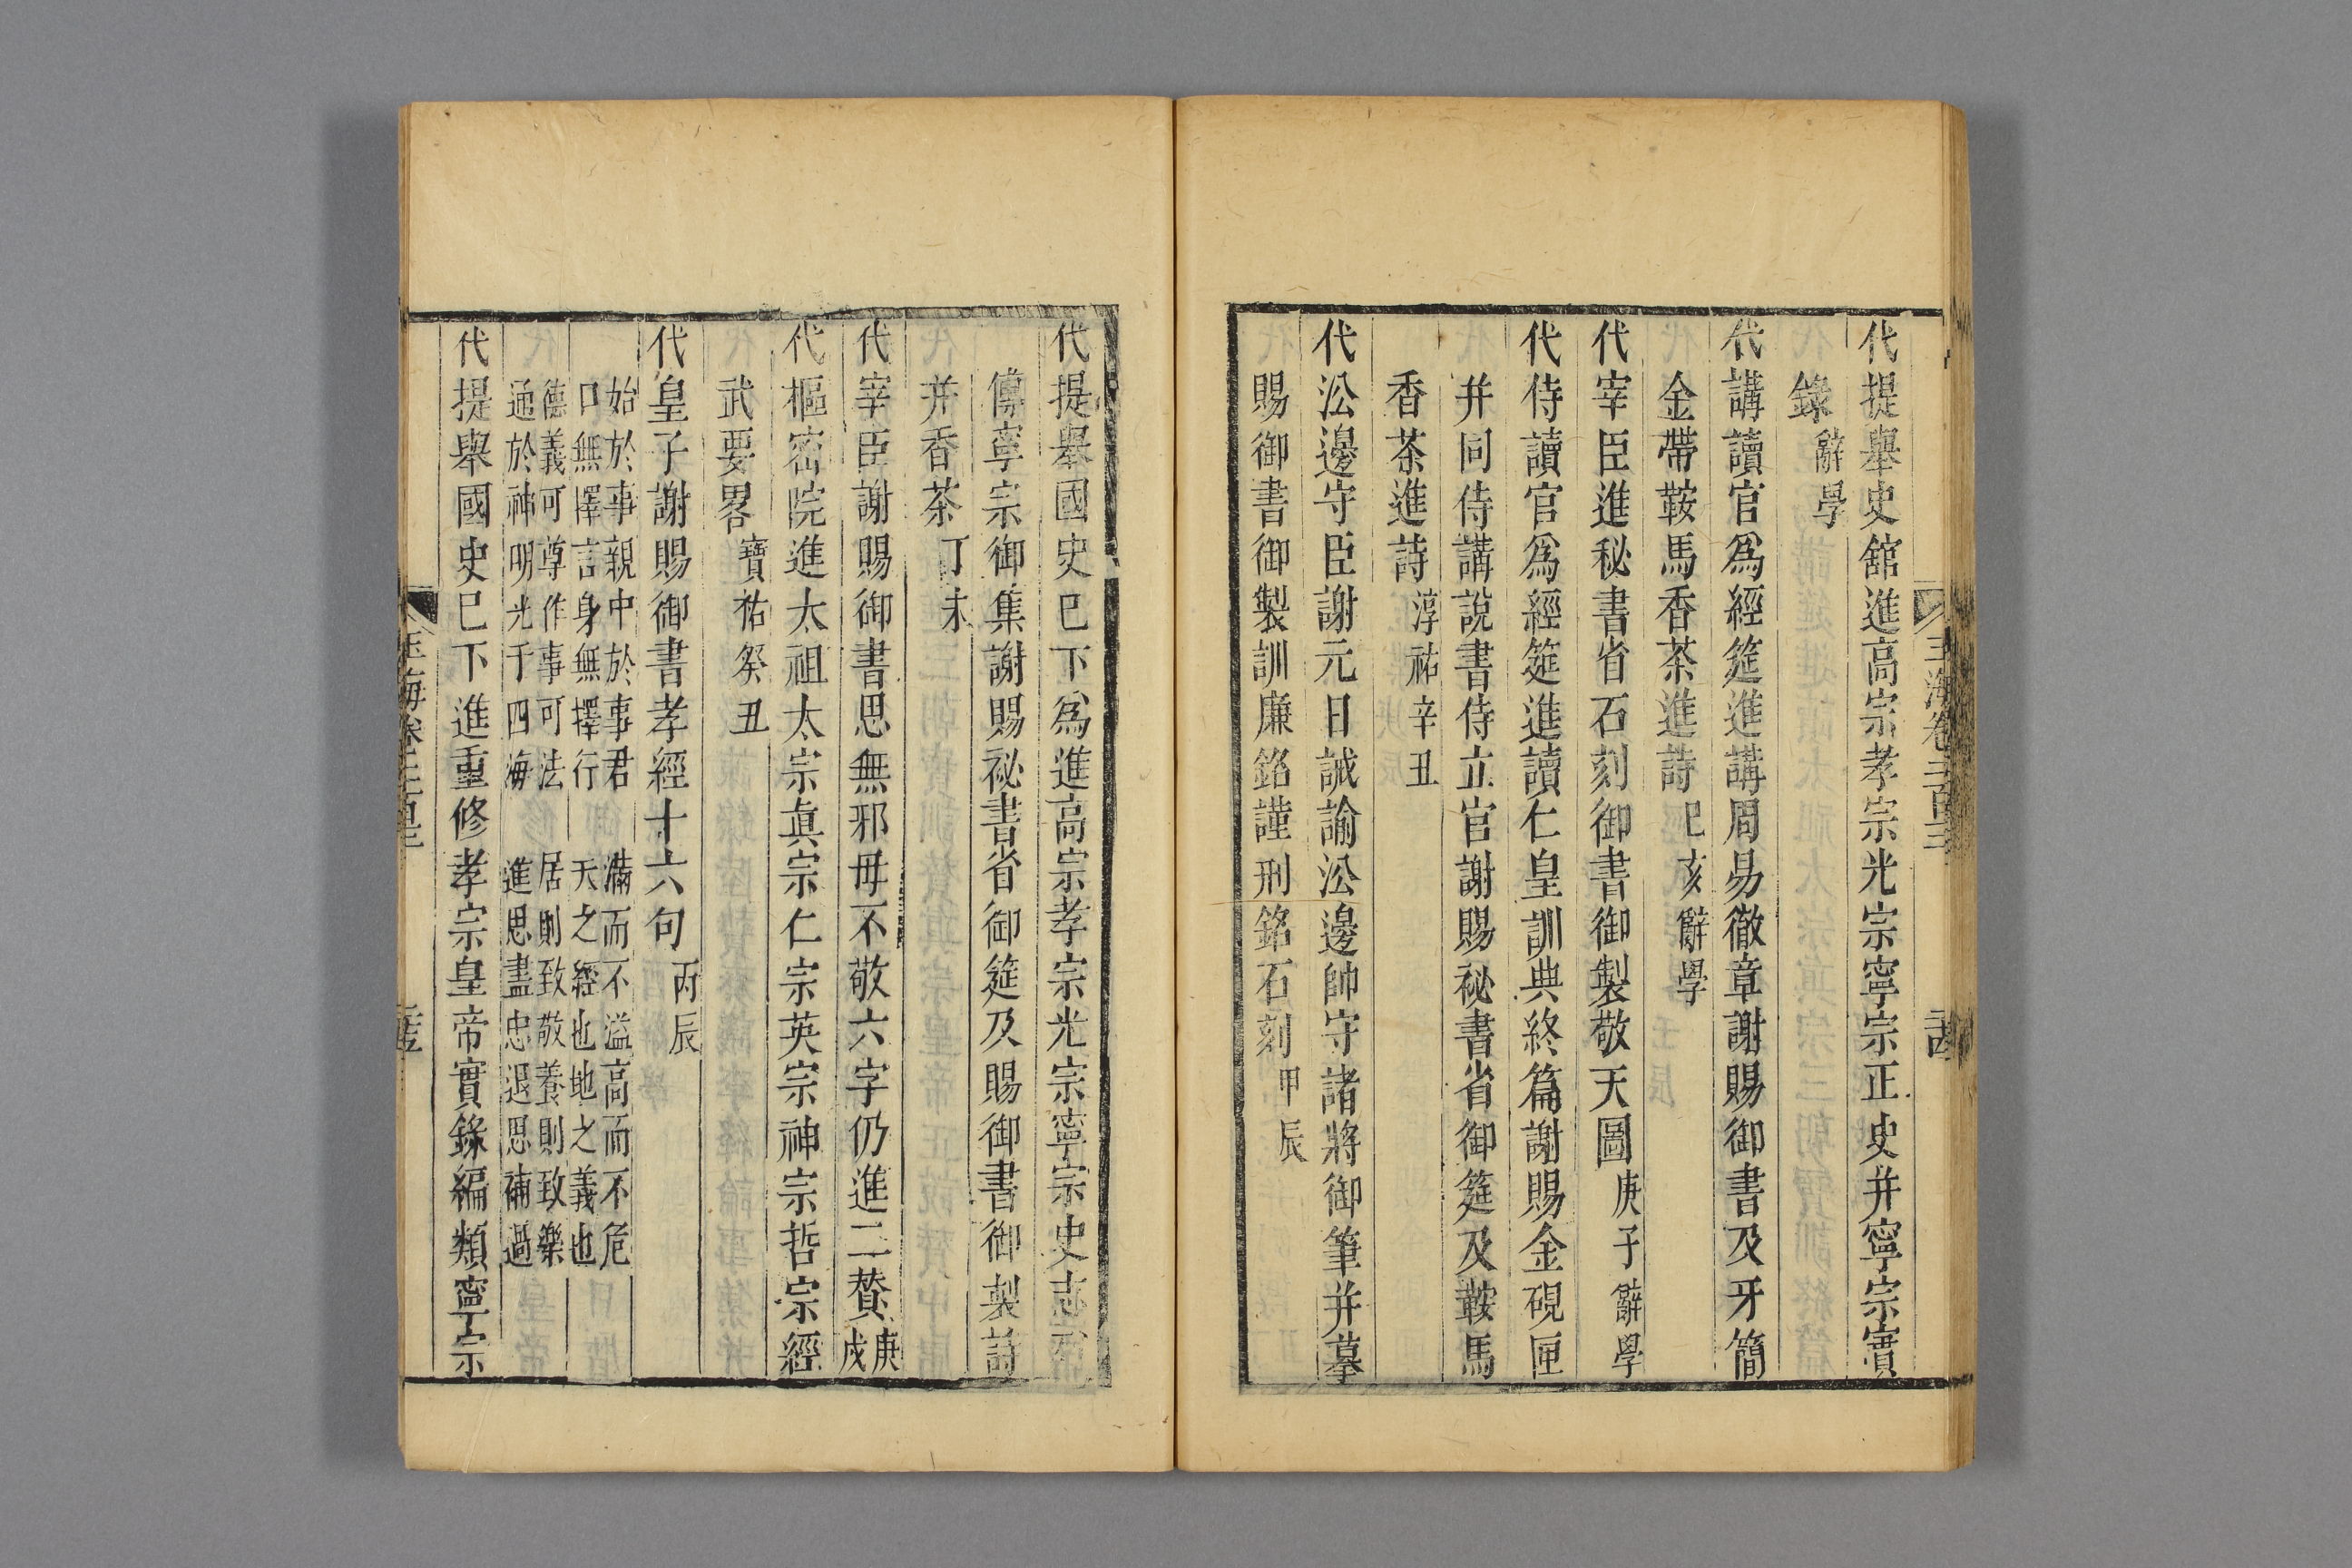 代提舉史舘進高宗孝宗光宗寧宗正史并寧宗實
錄辭學
代講讀官爲經筵進講周易徹章謝賜御書及牙簡
金帶鞍馬香茶進詩巳亥辭學
代宰臣進秘書省石刻御書御製敬天圖庚子辭學
代侍讀官爲經筵進讀仁皇訓典終篇謝賜金硯匣
并同侍講說書侍立官謝賜祕書省御筵及鞍馬
香茶進詩淳祐辛丑
代㳂邊守臣謝元日誡諭㳂邊帥守諸將御筆并摹
賜御書御製訓廉銘謹刑銘石刻甲辰
代提舉國史巳下爲進高宗孝宗光宗寧宗史志
傳寧宗御集謝賜祕書省御筵及賜御書御製詩
并香茶丁未
代宰臣謝賜御書思無邪毋不敬六字仍進二贊庚戌
代樞密院進太祖太宗眞宗仁宗英宗神宗哲宗經
武要畧寶祐癸丑
代皇子謝賜御書孝經十六句丙辰
始於事親中於事君 滿而不溢高而不危
口無擇言身無擇行 天之經也地之義也
德義可尊作事可法 居則致敬養則致樂
通於神明光于四海 進思盡忠退思補過
代提舉國史巳下進重修孝宗皇帝實錄編類寧宗